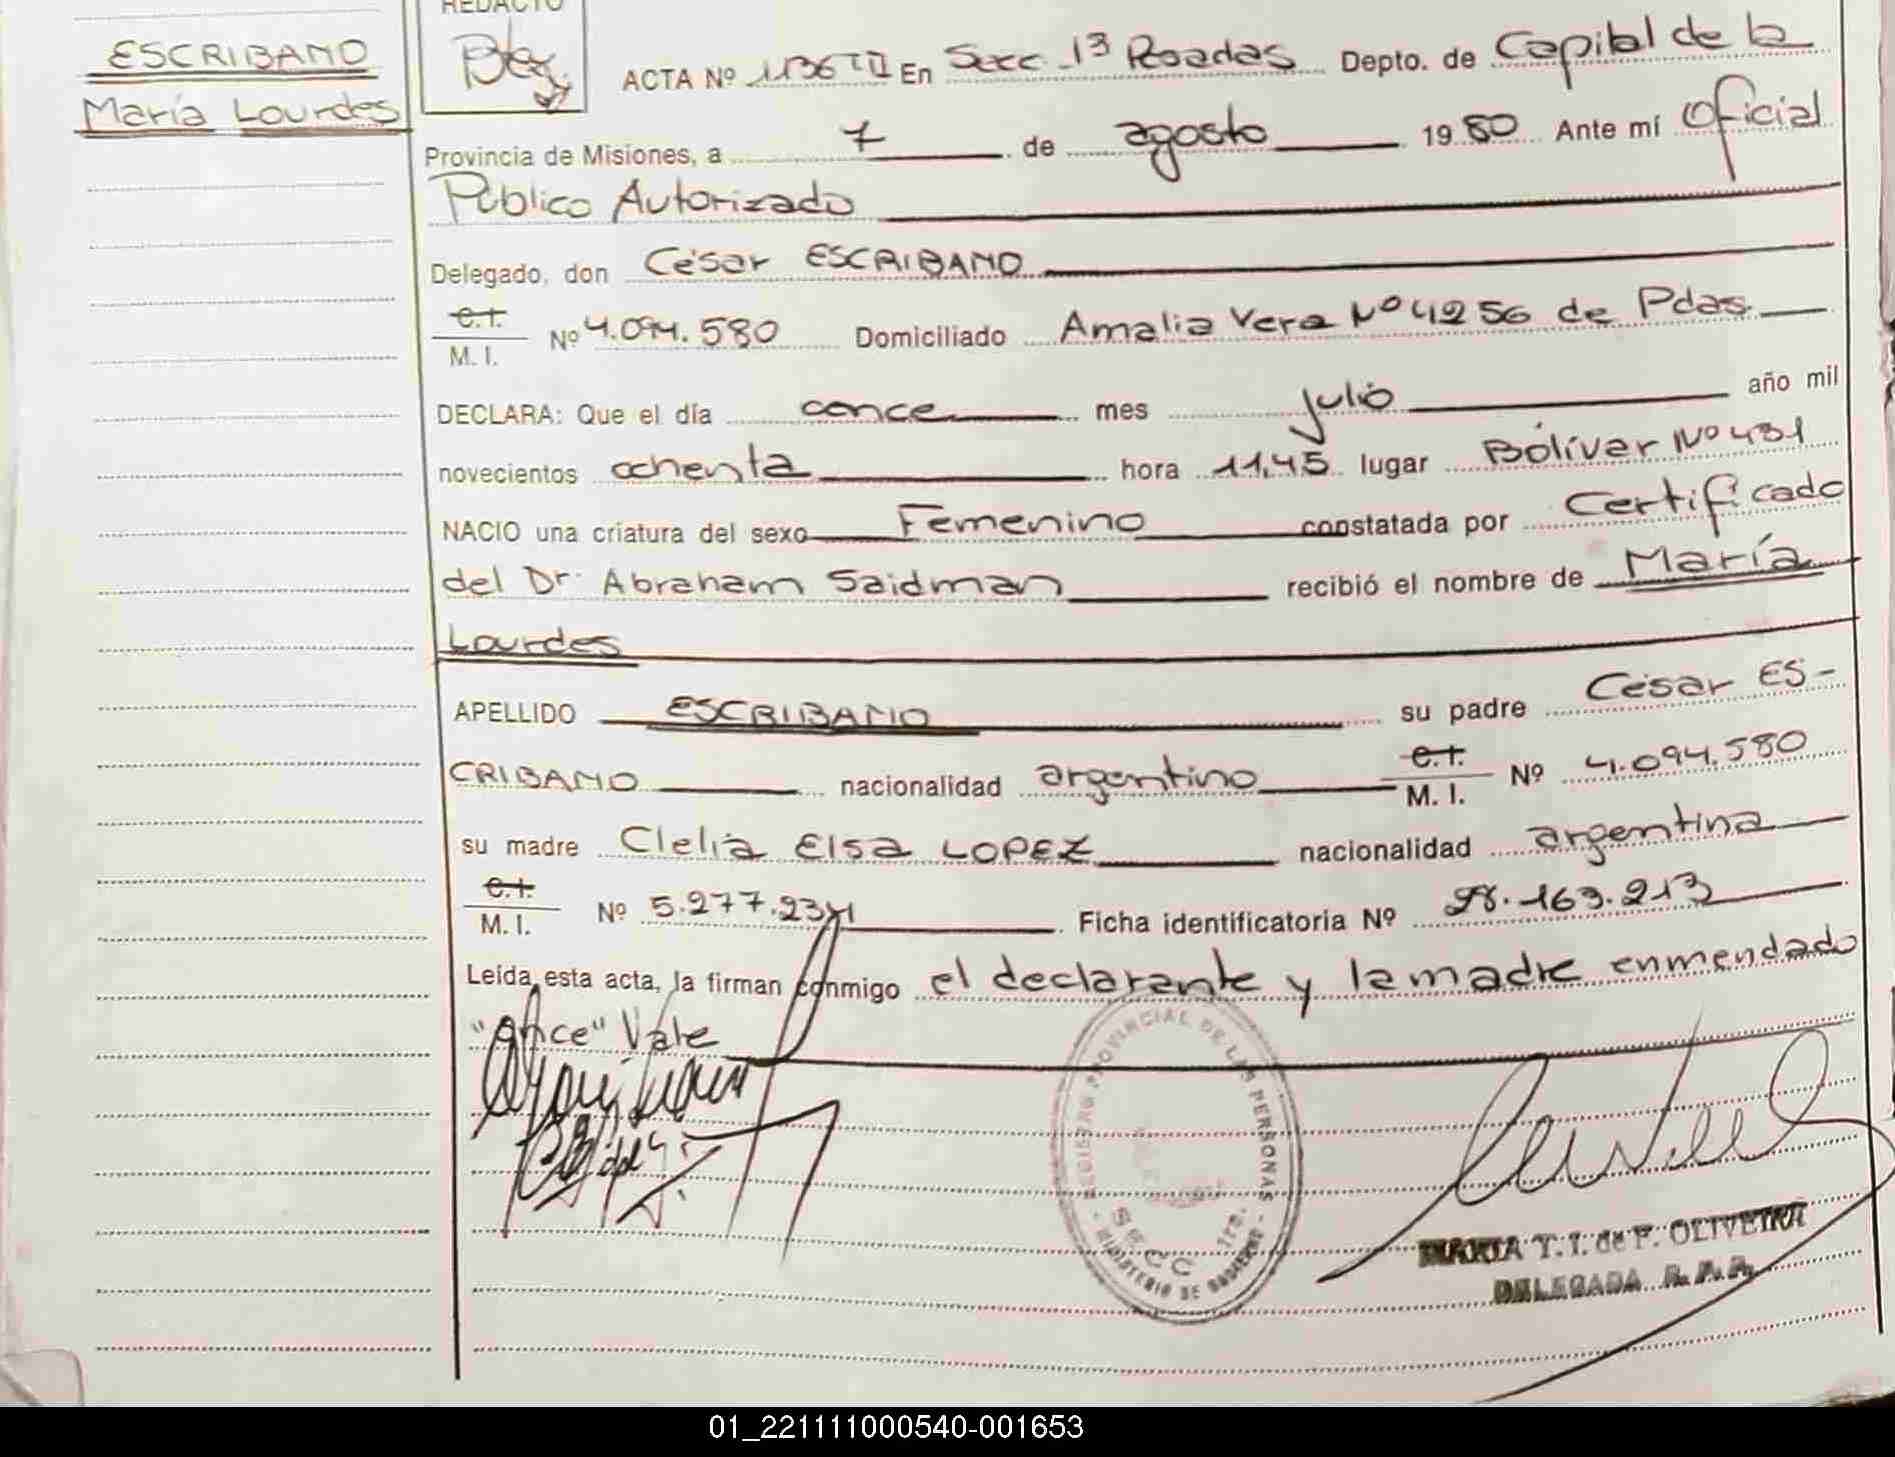 REDACTO
ESCRIBANO
María Lourdes
ACTA Nº 1136 TII En Secc. 1ª Posadas Depto. de Capital de la
Provincia de Misiones, a 7 de agosto 1980 Ante mí Oficial
Público Autorizado
Delegado, don César ESCRIBANO
C.I. M.I. Nº 4.094.580 Domiciliado Amalia Vera Nº 4256 de Pdas.
DECLARA: Que el día once mes julio año mil
novecientos ochenta hora 11,45 lugar Bólívar Nº 431
NACIO una criatura del sexo Femenino constatada por Certificado
del Dr. Abraham Saidman recibió el nombre de María
Lourdes
APELLIDO ESCRIBANO su padre César ES-
CRIBANO nacionalidad argentino C.I. M.I. Nº 4.094.580
su madre Clelia Elsa LOPEZ nacionalidad argentina
C.I. M.I. Nº 5.277.231 Ficha identificatoria Nº 28.163.213
Leída esta acta, la firman conmigo el declarante y la madre enmendado
"once" Vale
REGISTRO PROVINCIAL DE LAS PERSONAS
SECC. 1ra.
MINISTERIO DE GOBIERNO
MARIA T. I. de F. OLIVEIRA
DELEGADA R.P.P.
01_221111000540-001653